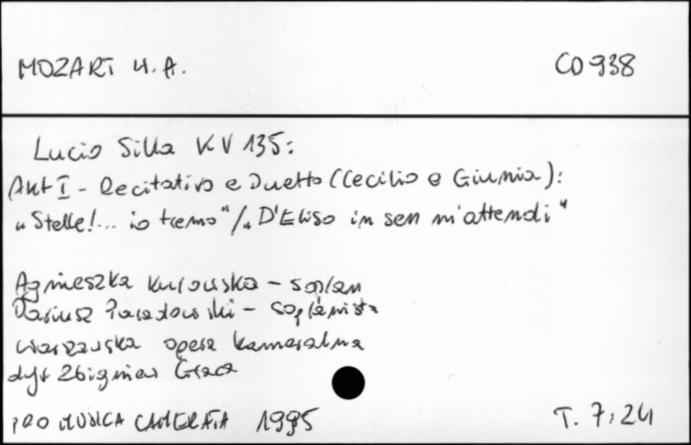 MOZART W. A. CD 938
Lucio Silla KV 135:
Akt I - Recitativo e Duetto (Cecilio e Giunia):
"Stelle!... io tremo"/"D'Eliso in sen m'attendi"
Agnieszka Kurowska - sopran
Dariusz Paradowski - sopranista
Warszawska opera kameralna
dyr Zbigniew Graca
PRO MUSICA CAMERATA 1995 T. 7:24